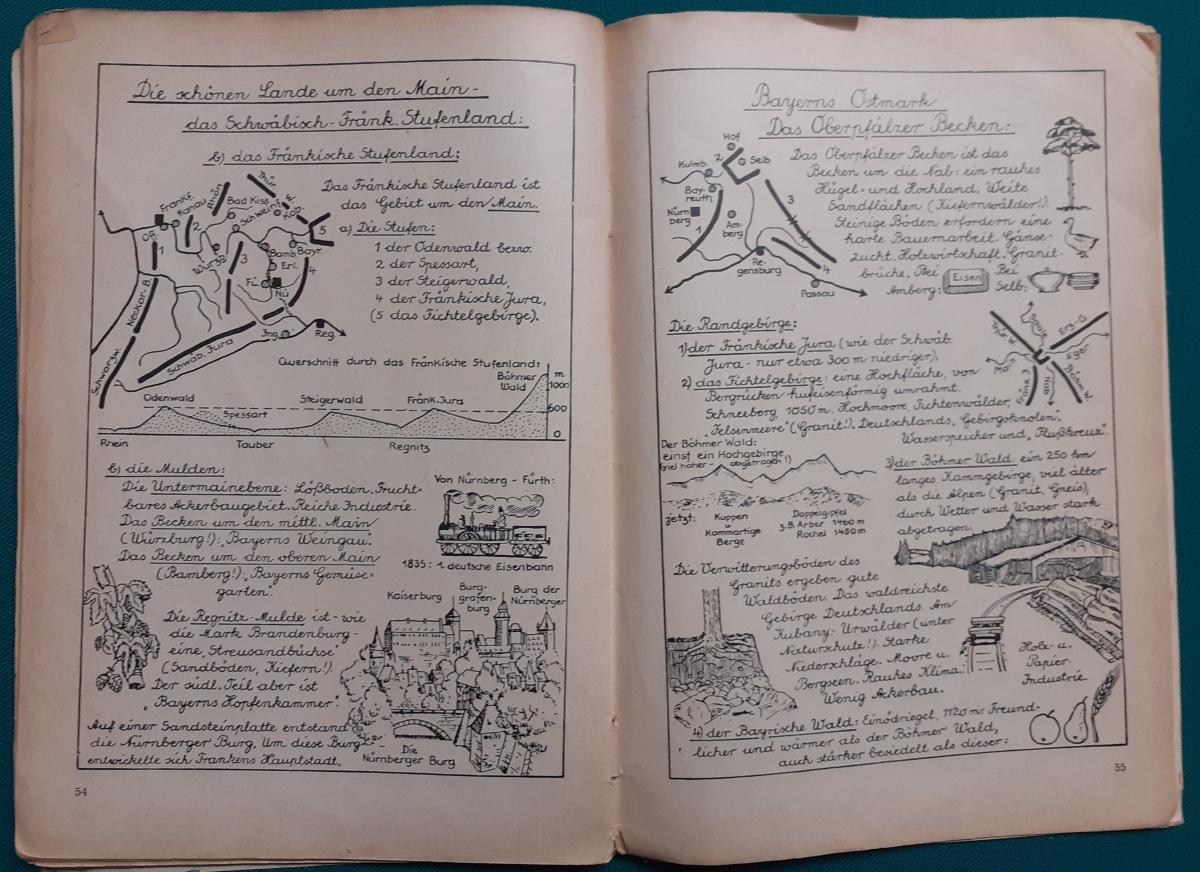 Die schönen Lande um den Main -
das Schwäbisch-Fränk. Stufenland:
b) das Fränkische Stufenland:
Das Fränkische Stufenland ist
das Gebiet um den Main.
a) Die Stufen:
1 der Odenwald bezw.
2 der Spessart,
3 der Steigerwald,
4 der Fränkische Jura,
(5 das Fichtelgebirge).
Frankf.
Hanau
Rhön
Thür. W.
Bad Kiss.
Schweinf.
Kob.
Off.
1
2
5
Würzb.
3
Bamb.
Bayr.
Erl.
4
Fü.
Nü
Neckar-B.
Schwarzw.
Schwäb. Jura
Ing.
Reg.
Querschnitt durch das Fränkische Stufenland:
Böhmer
Wald
m
1000
600
0
Odenwald
Spessart
Steigerwald
Fränk. Jura
Rhein
Tauber
Regnitz
b) die Mulden:
Die Untermainebene: Lößboden. Frucht-
bares Ackerbaugebiet. Reiche Industrie.
Das Becken um den mittl. Main
(Würzburg!): „Bayerns Weingau“.
Das Becken um den oberen Main
(Bamberg!): „Bayerns Gemüse-
garten“.
Von Nürnberg - Fürth:
1835: 1. deutsche Eisenbahn
Die Regnitz-Mulde ist - wie
die Mark Brandenburg -
eine „Streusandbüchse“
(Sandböden, Kiefern!).
Der südl. Teil aber ist
„Bayerns Hopfenkammer“.
Kaiserburg
Burg-
grafen-
burg
Burg der
Nürnberger
Auf einer Sandsteinplatte entstand
die Nürnberger Burg. Um diese Burg
entwickelte sich Frankens Hauptstadt.
Die
Nürnberger Burg
54
Bayerns Ostmark
Das Oberpfälzer Becken:
Hof
Kulmb.
2
Selb
Bay-
reuth
3
Nürn
berg
Am-
berg
1
Re-
gensburg
4
Passau
Das Oberpfälzer Becken ist das
Becken um die Nab: ein rauhes
Hügel- und Hochland. Weite
Sandflächen (Kiefernwälder!).
Steinige Böden erfordern eine
harte Bauernarbeit. Gänse-
zucht. Holzwirtschaft. Granit-
brüche. Bei
Amberg:
Eisen
Bei
Selb:
Die Randgebirge:
1) der Fränkische Jura (wie der Schwäb.
Jura - nur etwa 300 m niedriger),
2) das Fichtelgebirge: eine Hochfläche, von
Bergrücken hufeisenförmig umrahmt.
Schneeberg, 1050 m. Hochmoore, Fichtenwälder,
„Felsenmeere“ (Granit!). Deutschlands „Gebirgsknoten“,
Wasserspeicher und „Flußkreuz“.
Thür. W.
Saale
Erz-G.
Main
Eger
Fränk. J.
Nab
Böhm. W.
Der Böhmer Wald:
einst ein Hochgebirge
(viel höher - abgetragen!)
jetzt:
Kuppen
u.
Kammartige
Berge
Doppelgipfel
z.B. Arber 1460 m
Rachel 1450 m
3) der Böhmer Wald: ein 250 km
langes Kammgebirge, viel älter
als die Alpen (Granit, Gneis),
durch Wetter und Wasser stark
abgetragen.
Die Verwitterungsböden des
Granits ergeben gute
Waldböden. Das waldreichste
Gebirge Deutschlands. Am
Kubany: Urwälder (unter
Naturschutz!). Starke
Niederschläge. Moore u.
Bergseen. Rauhes Klima.
Wenig Ackerbau.
Holz- u.
Papier-
Industrie
4) der Bayrische Wald: Einödriegel, 1120 m: Freund-
licher und wärmer als der Böhmer Wald,
auch stärker besiedelt als dieser:
55